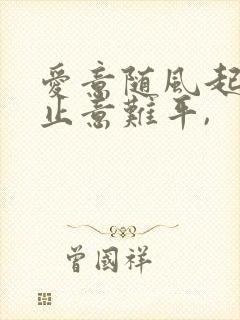 愛意随風起
止意難平,
曾國祥